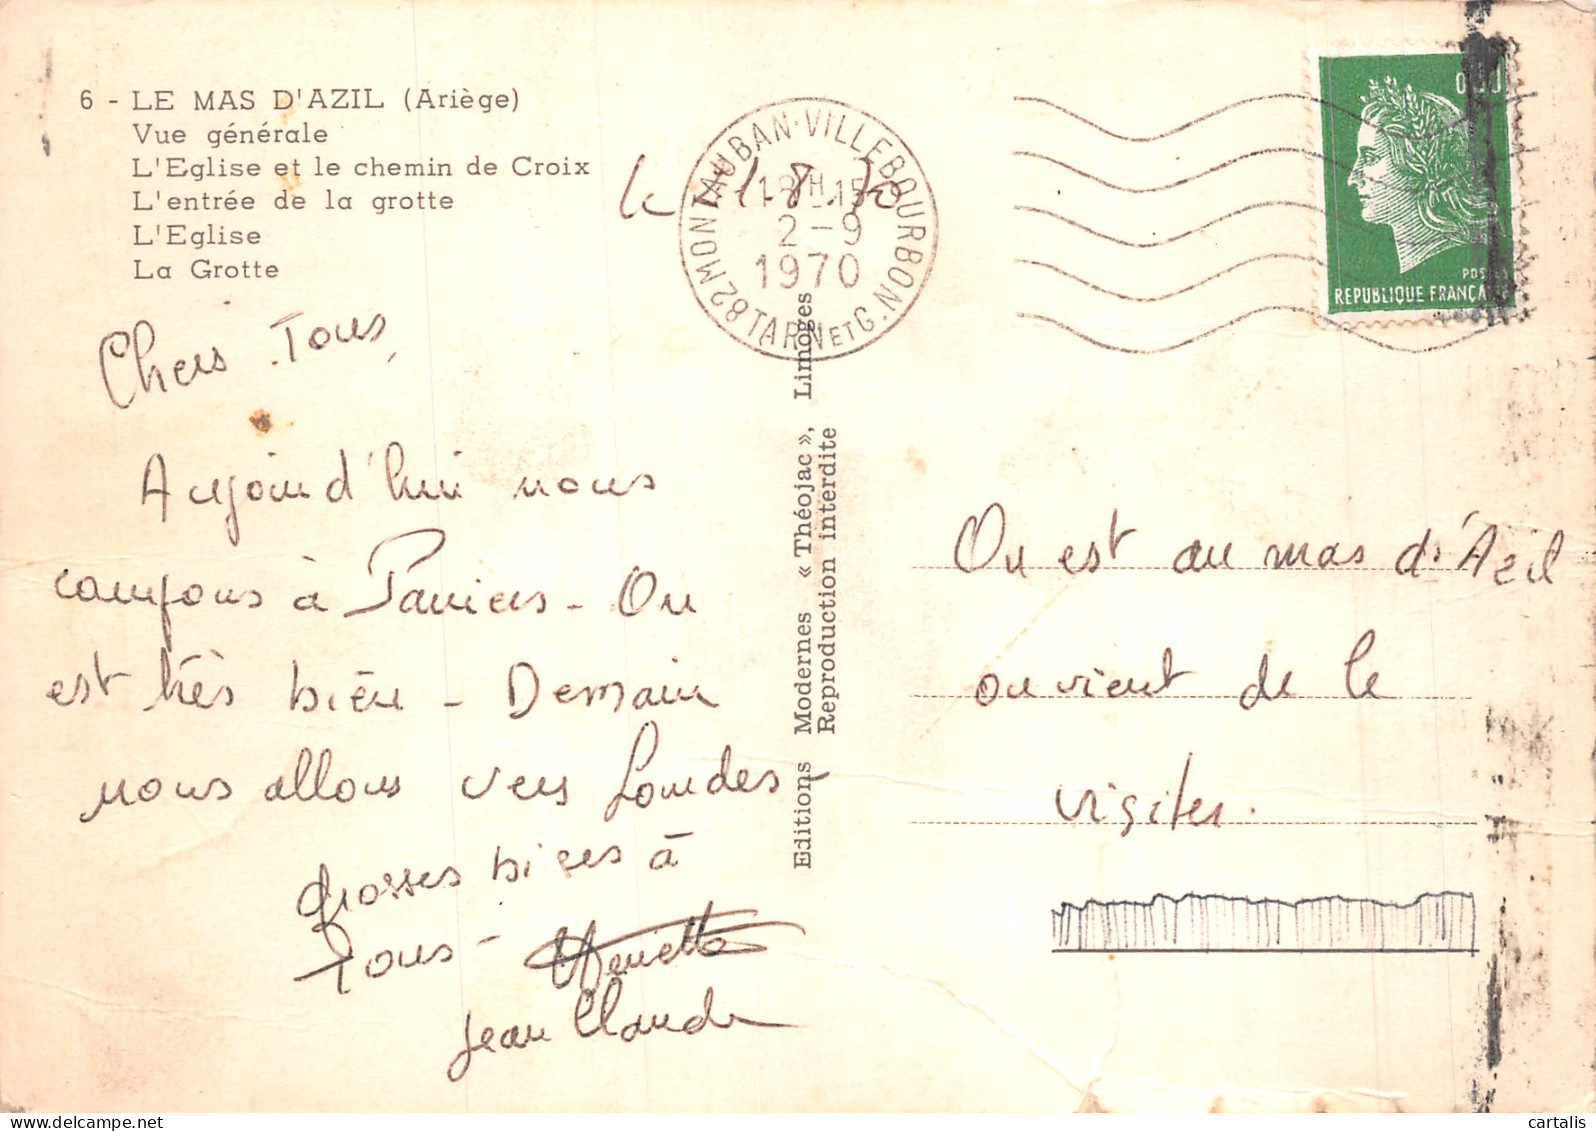 6 - LE MAS D'AZIL (Ariège)
Vue générale
L'Eglise et le chemin de Croix
L'entrée de la grotte
L'Eglise
La Grotte
82 MONTAUBAN-VILLEBOURBON
18H15
2-9
1970
TARN ET G.
0,30
POSTES
REPUBLIQUE FRANÇAISE
Chers Tous,
Aujourd'hui nous
campons à Pamiers - On
est très bien - Demain
nous allons vers Lourdes -
Grosses bises à
Tous - Henriette
Jean Claude
Editions Modernes « Théojac », Limoges
Reproduction interdite
On est au mas d'Azil
on vient de le
visiter.
cartalis
www.delcampe.net